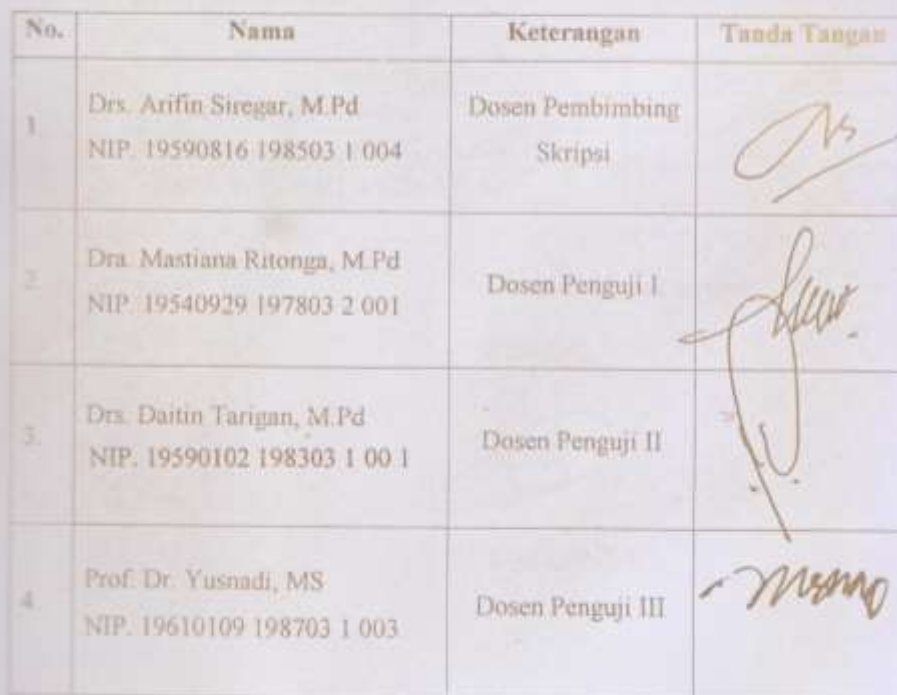 No. Nama Keterangan Tanda Tangan
1. Drs. Arifin Siregar, M.Pd
NIP. 19590816 198503 1 004
Dosen Pembimbing
Skripsi
2. Dra. Mastiana Ritonga, M.Pd
NIP. 19540929 197803 2 001
Dosen Penguji I
3. Drs. Daitin Tarigan, M.Pd
NIP. 19590102 198303 1 00 1
Dosen Penguji II
4. Prof. Dr. Yusnadi, MS
NIP. 19610109 198703 1 003
Dosen Penguji III